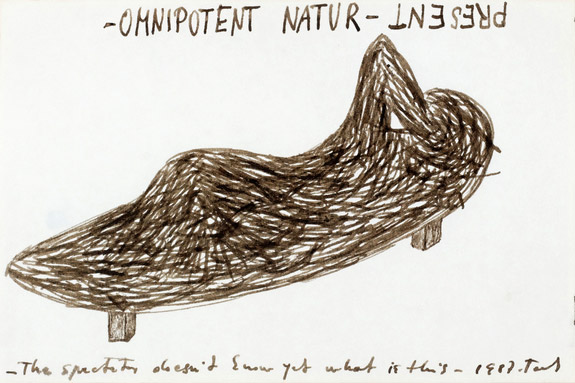 -OMNIPOTENT NATUR- PRESENT
-The spectator doesn't know yet what is this-